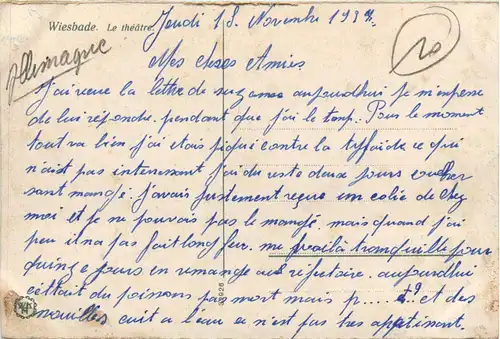 Wiesbade. Le théâtre.
Jeudi 18 Novembre 193
Allemagne
10
Mes cheres Amies
J'ai reçue la lettre de suzanne aujourdhui je m'enpese
de lui réponდre. pendant que j'ai le temp. Pour le moment
tout va bien j'ai étais piqué contre la tyffoide ce qui
n'ait pas interresent j'ai du reste deux jours coucher
sant mangé. j'avais justement reçue un colie de chez
moi et je ne pouvais pas le mangé. mais quand j'ai
peu il n'a pas fait long feu. me voilà tranquille pour
quinze jours en remange au réfectoire. aujourdhui
c'ettait du poissons pas mort mais p..... et des
nouilles cuit a l'eau ce n'est pas tres appetisant.
03926